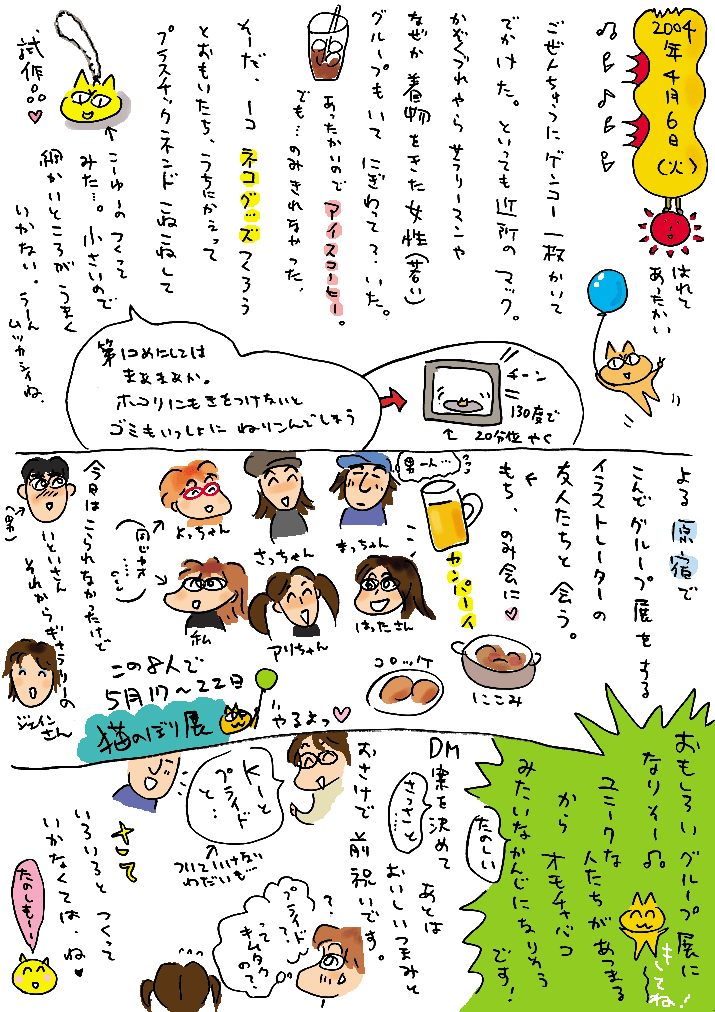 2004年4月6日(火)
はれて
あったかい
ごぜんちゅうにゲンコー一枚かいて
でかけた。といっても近所のマック。
かぞくづれやらサラリーマンや
なぜか着物をきた女性(若い)
グループもいてにぎわって?いた。
あったかいのでアイスコーヒー。
でも…のみきれなかった、
そーだ、1コネコグッズつくろう
とおもいたち、うちにかえって
プラスチックネンドこねこねして
↑こーゆーのつくって
みた…。小さいので
細かいところがうまく
いかない。うーん
ムツカシイね、
試作。。。♥
第1コめにしては
まぁまぁか。
ホコリにもきをつけないと
ゴミもいっしょにねりこんでしまう
チーン
130度で
20分位やく
よる原宿で
こんどグループ展をする
イラストレーターの
友人たちと会う。
もち、のみ会に♥
男一人…
フッフッ
カンパーイ
にこみ
コロッケ
まっちゃん
さっちゃん
よっちゃん
はったさん
アリちゃん
私
今日はこられなかったけど
いといさん
(男)
それからギャラリーの
ジェインさん
この8人で
5月17〜22日
猫のぼり展
やるよっ♥
おもしろいグループ展に
なりそー♫。
ユニークな
人たちがあつまる
から オモチャバコ
みたいなかんじになりそう
です!
きてね!
たのしい
DM案を決めて
さっさと
あとは
おいしいつまみと
おさけで前祝いです。
K-1と
プライド
と…
ついていけない
わだいも…
プライド?
って
キムタク
ので?
?
さて
いろいろとつくって
いかなくては、ね♥
たのしもー!